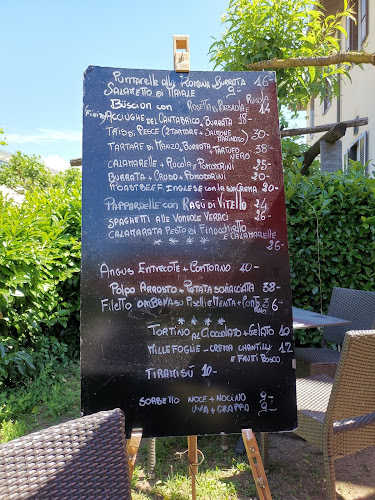 Puntarelle alla Romana Burrata 16-
Salametto di Maiale 9-
Büscion con Rosette di Bresaola e Rucola 14
Acciughe del Cantabrico, Burrata 18-
Tris di Pesce (2 Tartare + Salmone marinato) 30
Tartare di Manzo, Burrata, Tartufo nero 38-
Calamarelle + Rucola e Pomodorini 25-
Burrata + Crudo + Pomodorini 20-
Roastbeef Inglese con la sua Crema 20-
Pappardelle con Ragù di Vitello 24
Spaghetti alle Vongole Veraci 26-
Calamarata Pesto di Finocchietto e Calamarelle 26-
* * * *
Angus Entrecote + Contorno 40-
Polpo Arrosto + Patata schiacciata 38-
Filetto Ombrina su Piselli e Menta + Contorno 36-
* * * *
Tortino al Cioccolato + Gelato 10
Millefoglie - Crema Chantilly e Frutti Bosco 12
Tiramisú 10-
Sorbetto Noce + Nocino 9-
Uva + Grappa 9-